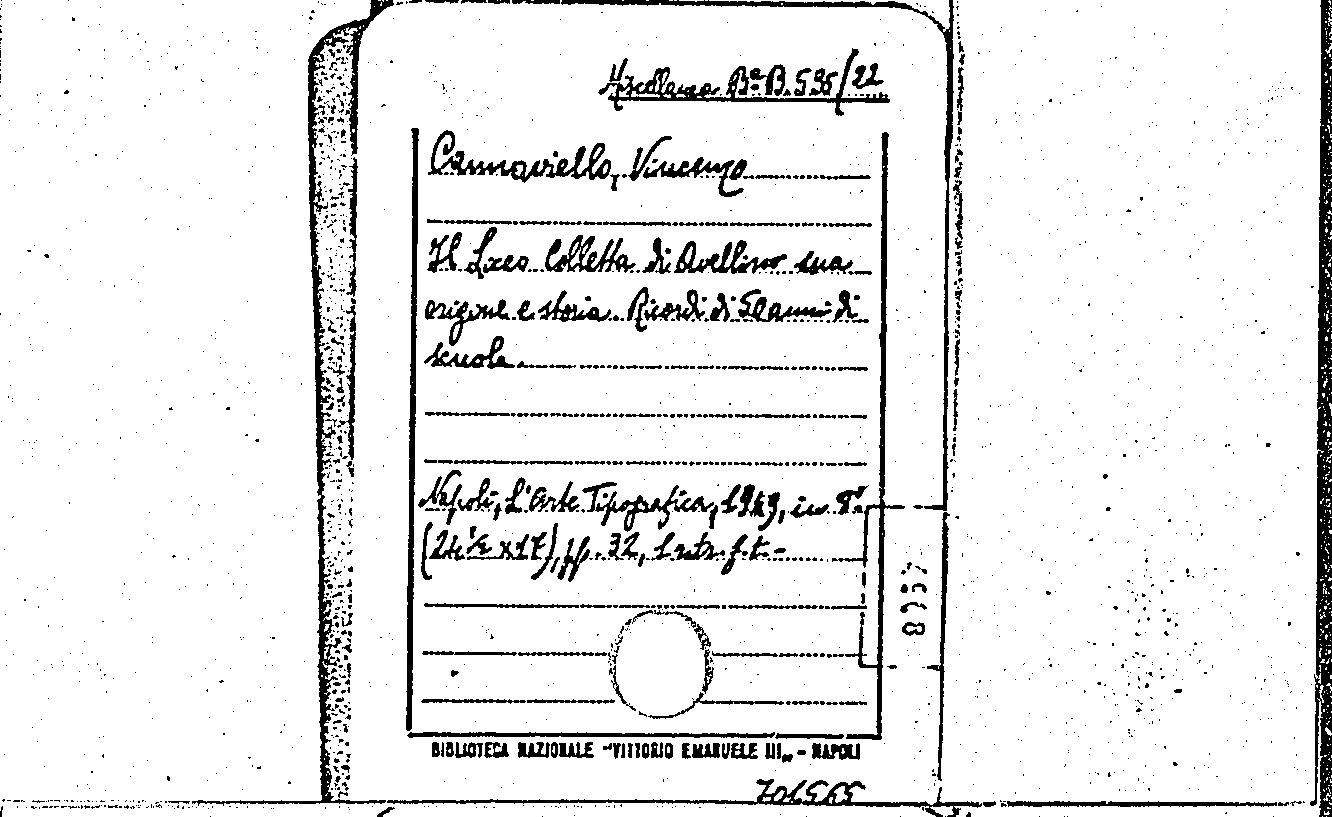 Miscellanea Bª B. 595/22
Cannaviello, Vincenzo
Il Liceo Colletta di Avellino sua
origine e storia. Ricordi di 50 anni di
scuola.
Napoli, L'Arte Tipografica, 1949, in 8º.
(24½ x 17), pp. 32, 1 ritr. f. t. -
BIBLIOTECA NAZIONALE "VITTORIO EMANUELE III„ - NAPOLI